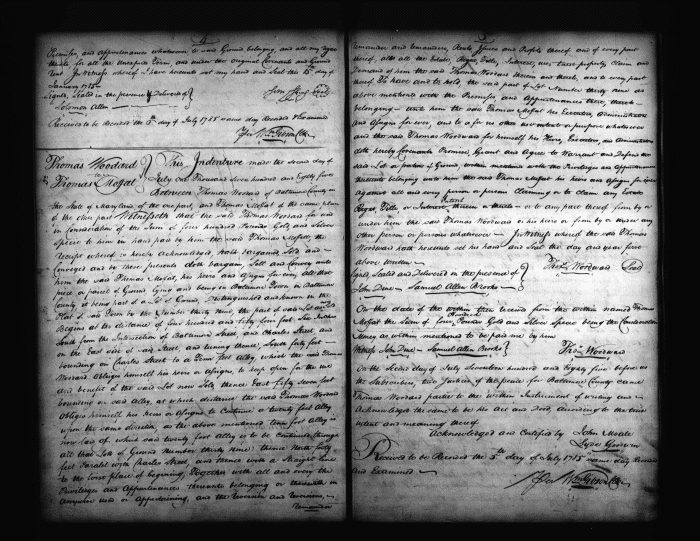 Premises, and appurtenances whatsoever to said Ground belonging, and all my
thereto for all the
Rent In Witness whereof I have hereunto set my hand and Seal this 15th day of
January 1785
Signed, Sealed in the presence & Delivered
Solomon Allen
Received to be Record the 5th day of July 1785 same day Recorded & Examined
Thomas Woodard
to
Thomas Mofat
This Indenture made the second day of
July One Thousand Seven hundred and Eighty five
Between Thomas Woward of Baltimore County in
the State of Maryland of the one part, and Thomas Moffat of the same place
of the other part Witnesseth that the said Thomas Woward for and
in Consideration of the Sum of four hundred Pounds Gold and Silver
Specie to him in hand paid by him the said Thomas Moffatt, the
Receipt whereof is hereby acknowledged, hath bargained Sold and
Conveyed and by these presents doth bargain, Sell and Convey unto
him the said Thomas Mofat, his heirs and Assigns for ever all that
piece or parcel of Ground lying and being in Baltimore Town in Baltimore
County it being part of a Lot of Ground, Distinguished and known in the
Plat of said Town by the Number thirty Nine, the part of said Lot
Begins at the distance of four hundred and fifty four feet
South from the Intersection of Baltimore Street and Charles Street, and
on the East side of said Street, and running thence, South forty feet
bounding on Charles Street to a Tenn feet alley, which the said Thomas
Woward Obliges himself his heirs or Assigns, to keep open for the use
and benefit of the said Lot now Sold, thence East fifty seven feet
bounding on said Alley, at which distance the said Thomas Woward
Obliges himself his heirs or Assigns to Continue a twenty feet Alley
upon the same direction, as the above mentioned tenn feet Alley is
now laid of, which said twenty feet Alley is to be Continued through
all that Lot of Ground Number thirty Nine) thence North forty
feet Paralel with Charles Street, and thence with a Straight line
to the first place of beginning, Together with all and every the
Priviledges and Appurtenances thereunto belonging or therewith in
Anywise used or Appertaining, and the Reversion and Reversions,
Remainder
5
remainder and remainders, Rents Issues and Profits thereof and of every part
thereof, all the Estate, Right, Title, Interest, use, trust property Claim and
Demand of him the said Thomas Woward therein and thereto, and to every part
thereof To have and to hold the said part of Lot Number thirty nine as
above mentioned with the Premises and Appurtenances there, thereto
belonging unto him the said Thomas Mofat his Executors, Administrators
and Assigns for ever, and to & for no other use intent or purpose whatsoever
and the said Thomas Woward for himself his Heirs, Executors, and Administrators
doth hereby Covenant Promise, Grant and Agree to Warrant and Defend the
said Lot or portion of Ground, within mentioned with the Priviledges and Appurtenances
thereunto belonging unto him the said Thomas Mofat his heirs and Assigns for ever
Against all and every person or persons Claiming or to Claim any Estate
Right, Title, or Interest, therein or thereto or to any part thereof from by or
under him the said Thomas Woward or his heirs or from by or under any
other person or persons whatsoever In Witness whereof the said Thomas
Woward hath hereunto set his hand and Seal the day and year first
above Written
Signed, Sealed and Delivered in the presence of
Thos Woward Seal
John Dine Samuel Allen Brooks
On the date of the within then received from the within named Thomas
Mofat the Sum of four Hundred Pounds Gold and Silver Specie being the Consideration
Money as within mentioned to be paid me by him
Witness John Dine Samuel Allen Brooks
Thos Woward
On the Second day of July Seventeen hundred and Eighty five before us
the Subscribers, two Justices of the peace for Baltimore County Came
Thomas Woward partie to the within Instrument of writing and
Acknowledged the same to be his Act and Deed, according to the true
intent and meaning thereof
Acknowledged and Certified by John Moale
Lyde Goodwin
Received to be Record the 5th day of July 1785 same day Record
and Examined